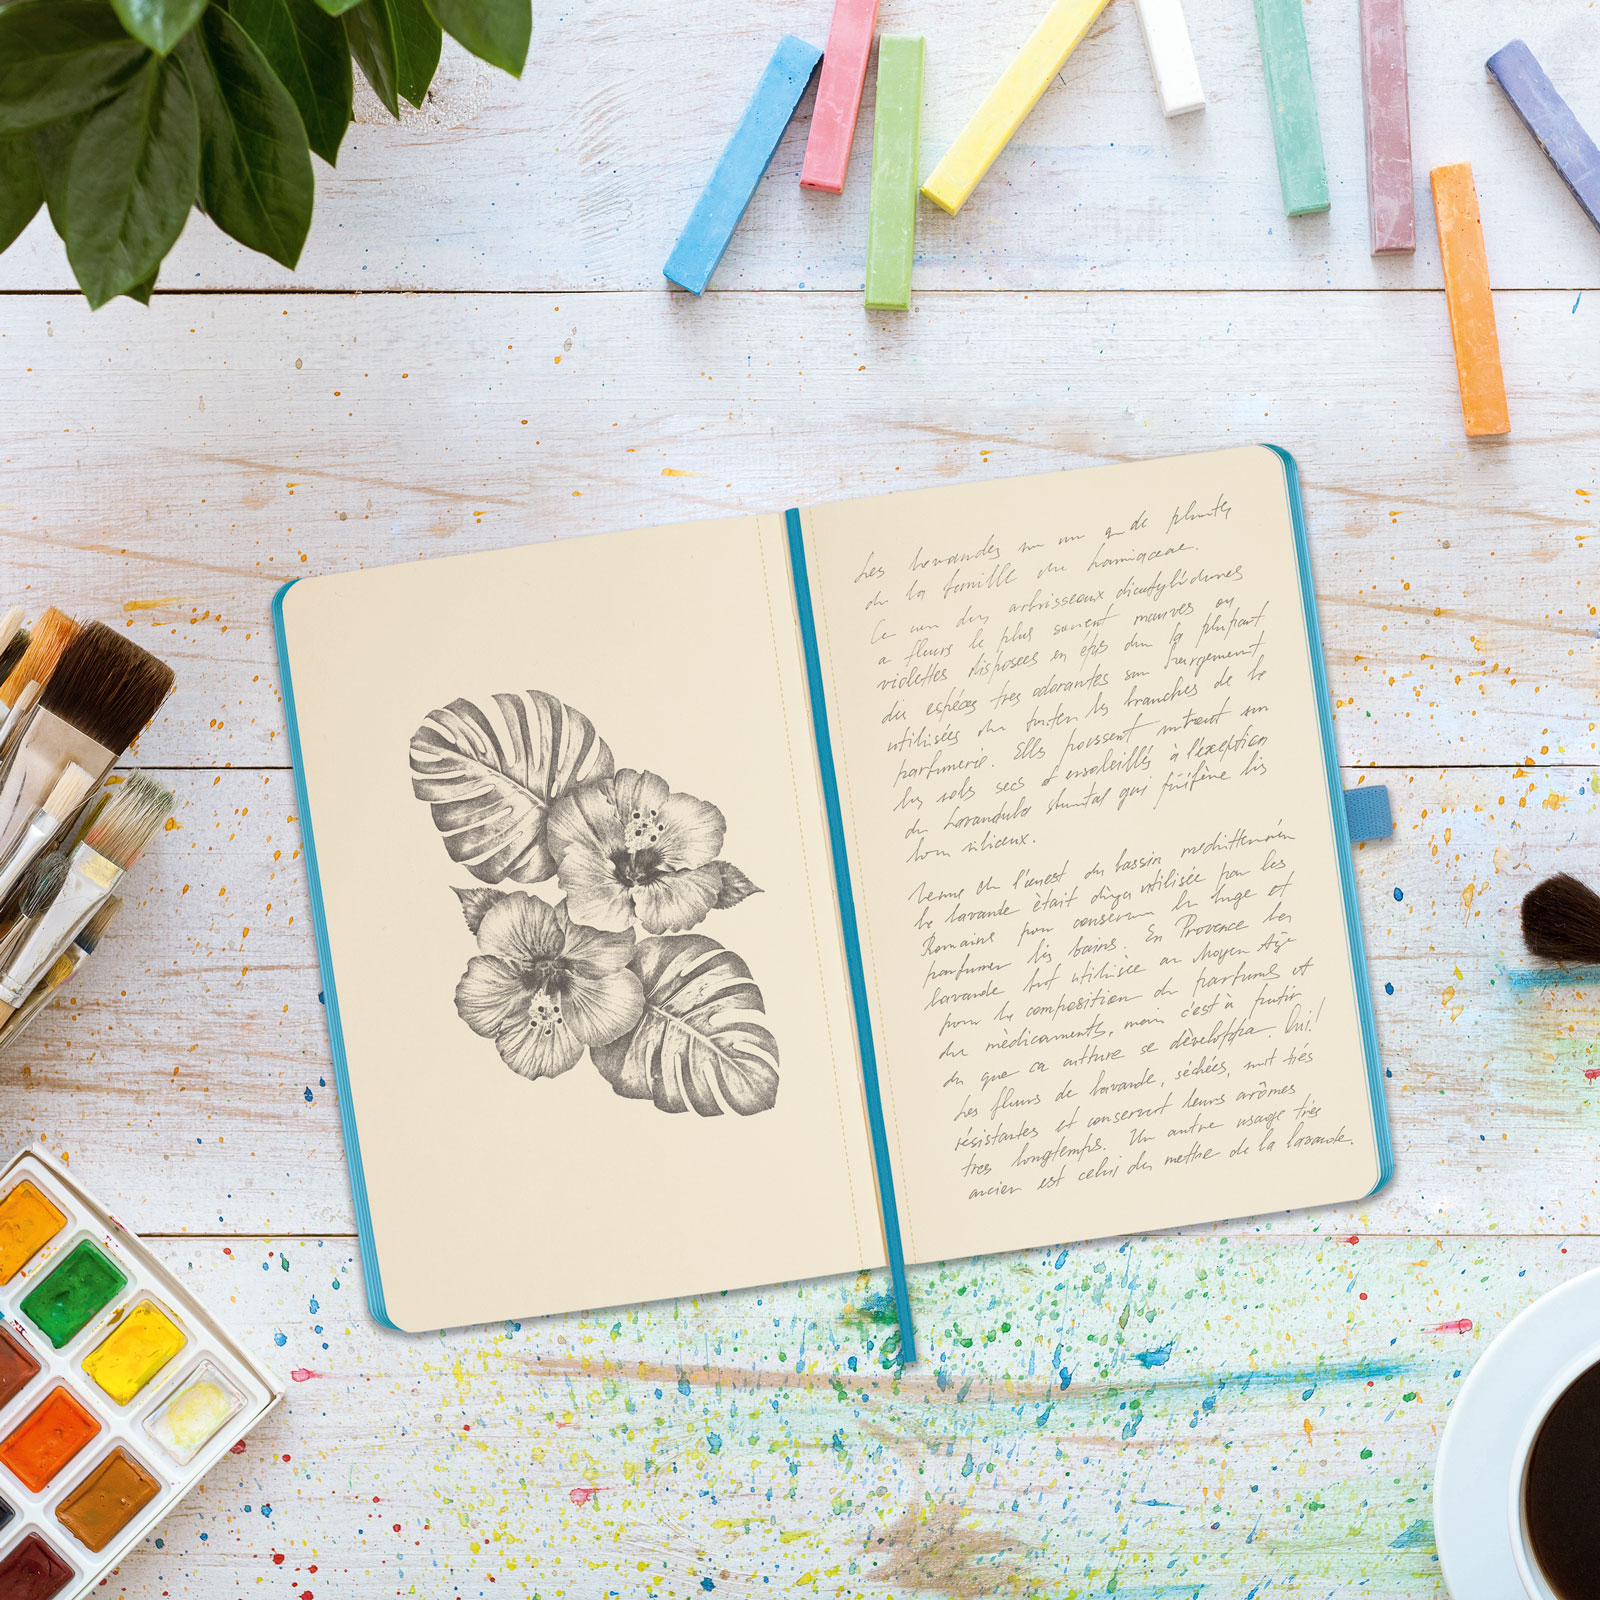 Les lavandes de plantes
de la famille du Lamiaceae.
Ce arbrisseaux dicotylédones
a fleurs le plus souvent mauves ou
violettes disposees en épis la plupart
espéces tres odorantes largement
utilisées les branches de la
parfumerie. Elles poussent surtout sur
les sols secs et ensoleillés à l'exception
du Lavandula qui préfère les
silieux.
l'ouest du bassin mediterranéen
la lavande était utilisée par les
Romains pour conserver le linge et
parfumer les bains. En Provence la
lavande fut utilisée au Moyen Age
pour la composition de parfums et
du mèdicaments, mais c'est à
du que ca culture se développa. Oui!
Les fleurs de lavande, séchées, sont trés
résistantes et conservent leurs arômes
tres longtemps. Un autre usage trés
ancien est celui du mettre de la lavande.